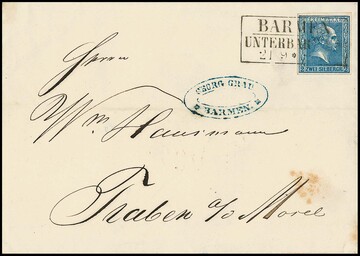 BARMEN
UNTERBAR
21 9
ZWEI SILBERGR
GEORG GRAU
BARMEN.
Herrn
Wm. Hausmann
Traben a/d Mosel